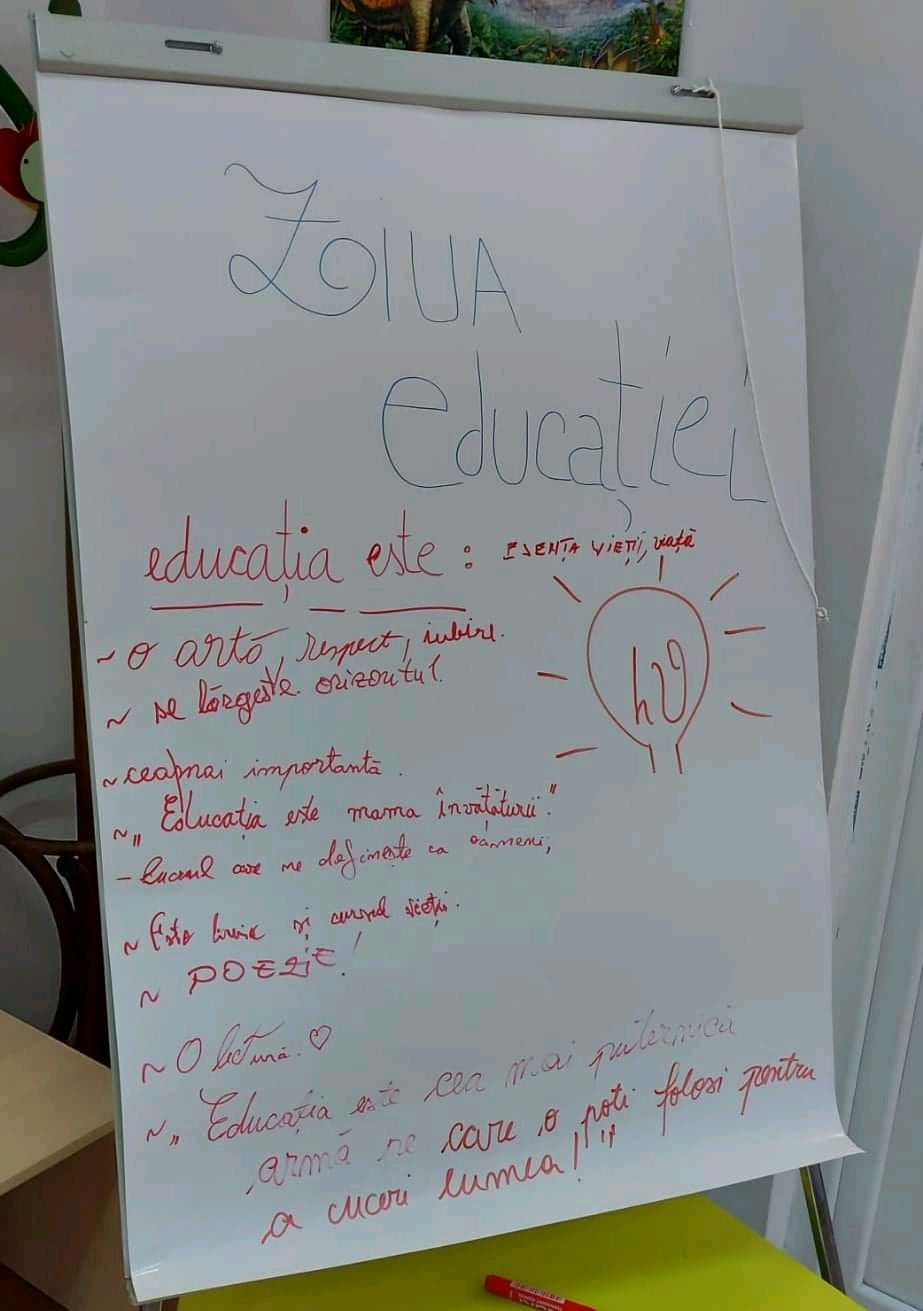 ZIUA
educației
educația este : ESENȚA VIEȚII, viață
~ o artă, respect, iubire.
~ se lărgește orizontul.
~ cea mai importantă.
~ „Educația este mama învățăturii."
- lucrul care ne definește ca oameni;
~ Este și cursul vieții.
~ POEZIE!
~ O lectură. ♡
~ „Educația este cea mai puternică
armă pe care o poți folosi pentru
a cuceri lumea!"